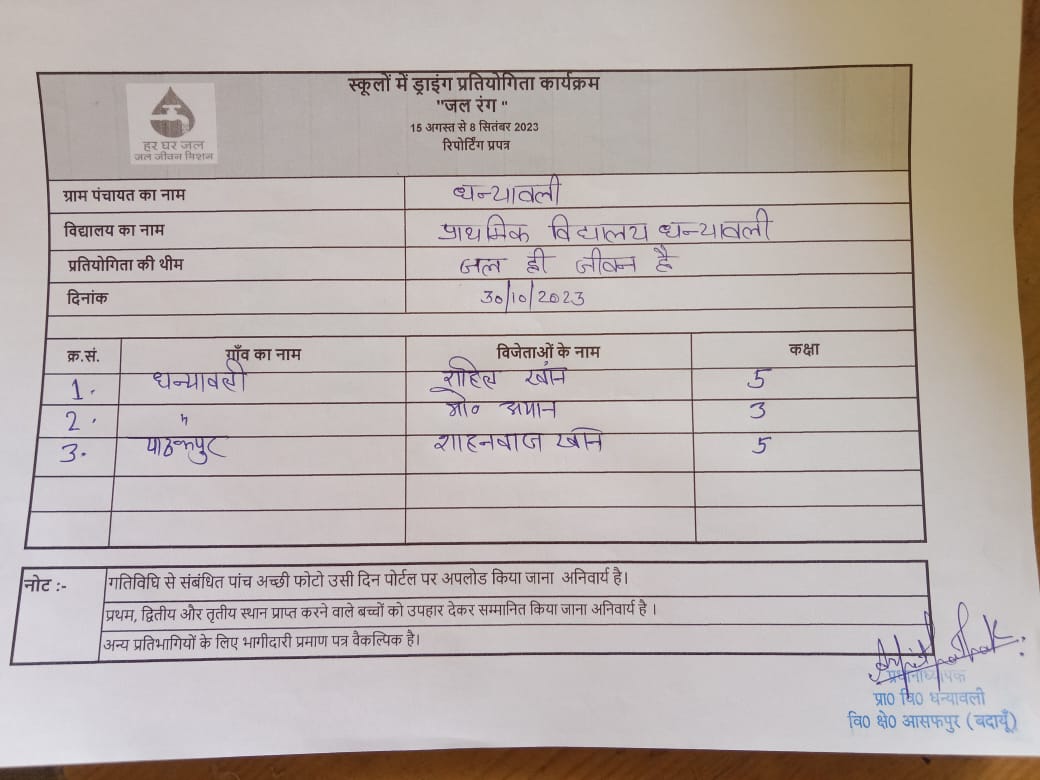 स्कूलों में ड्राइंग प्रतियोगिता कार्यक्रम
"जल रंग "
15 अगस्त से 8 सितंबर 2023
रिपोर्टिंग प्रपत्र
हर घर जल
जल जीवन मिशन
ग्राम पंचायत का नाम धन्यावली
विद्यालय का नाम प्राथमिक विद्यालय धन्यावली
प्रतियोगिता की थीम जल ही जीवन है
दिनांक 30/10/2023
क्र.सं. गाँव का नाम विजेताओं के नाम कक्षा
1. धन्यावली राहिल खान 5
2. " मो० अमान 3
3. पाठकपुर शाहनबाज खान 5
नोट :- गतिविधि से संबंधित पांच अच्छी फोटो उसी दिन पोर्टल पर अपलोड किया जाना अनिवार्य है।
प्रथम, द्वितीय और तृतीय स्थान प्राप्त करने वाले बच्चों को उपहार देकर सम्मानित किया जाना अनिवार्य है ।
अन्य प्रतिभागियों के लिए भागीदारी प्रमाण पत्र वैकल्पिक है।
प्रधानाध्यापक
प्रा0 वि0 धन्यावली
वि0 क्षे0 आसफपुर (बदायूँ)